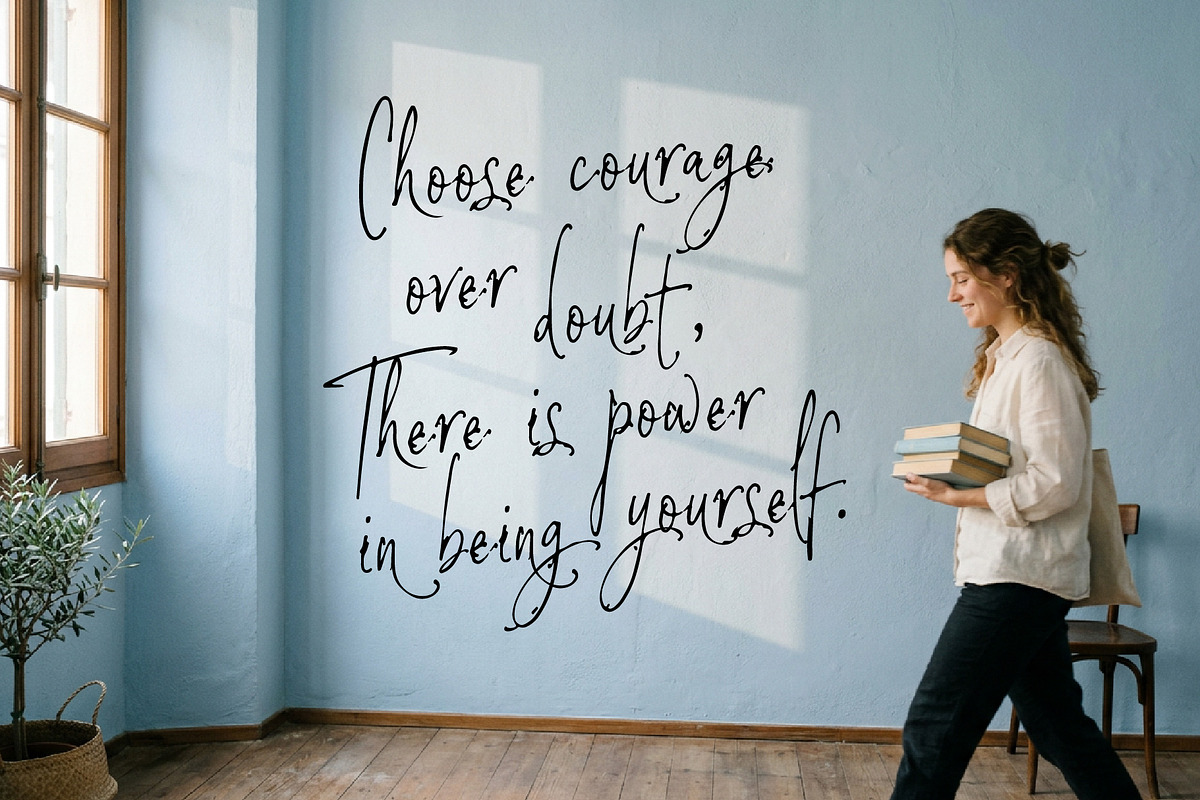 Choose courage
over doubt,
There is power
in being yourself.